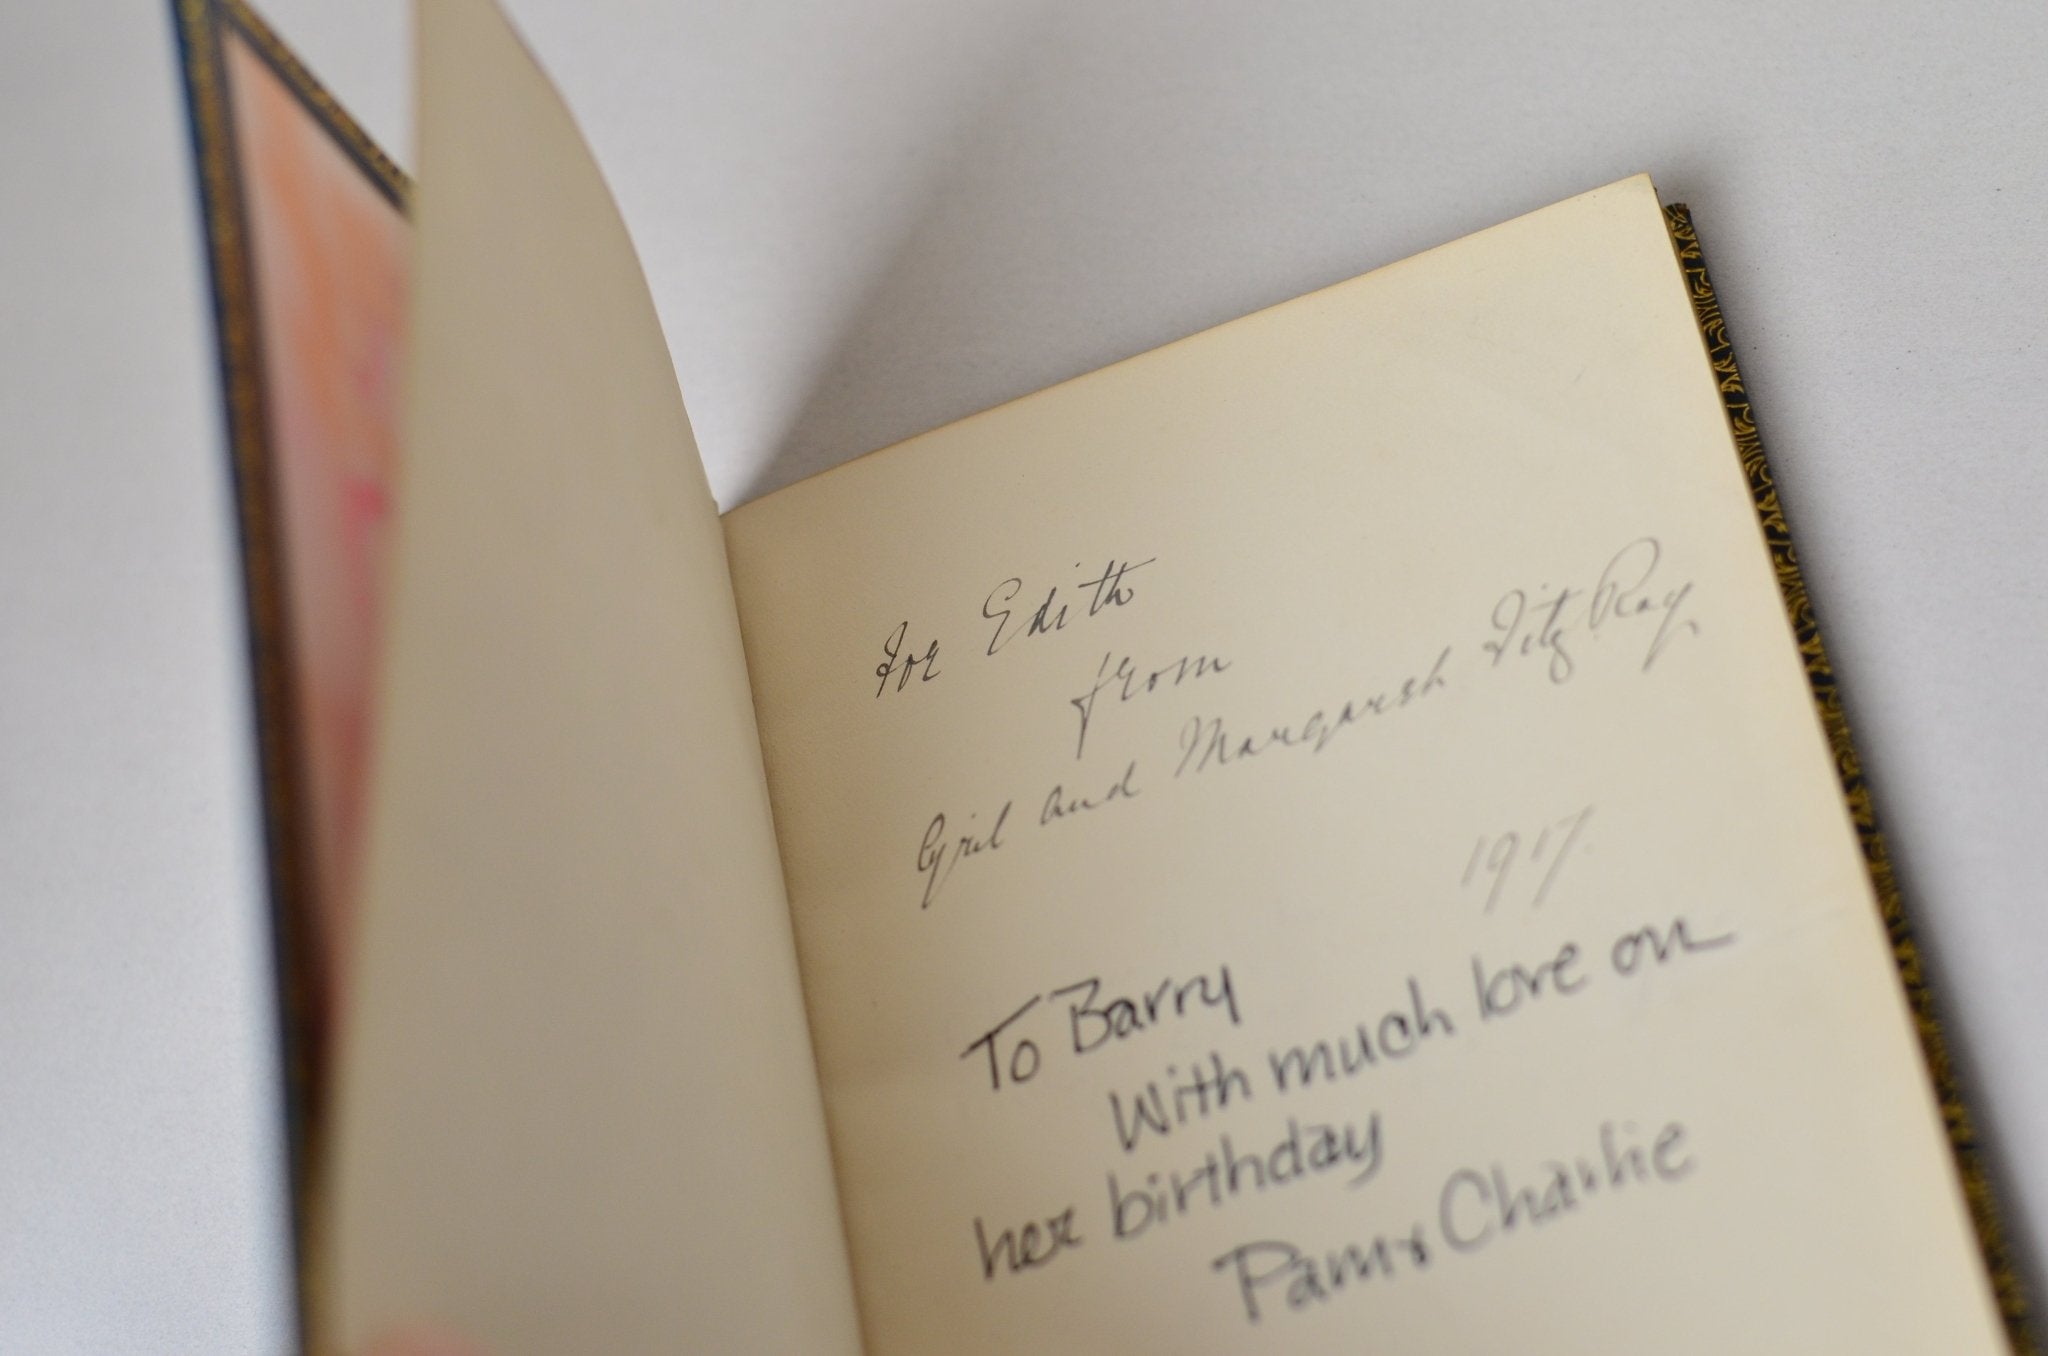 For Edith
from
Cyril and Margaret Fitz Roy
1917.
To Barry
With much love on
her birthday
Pam & Charlie